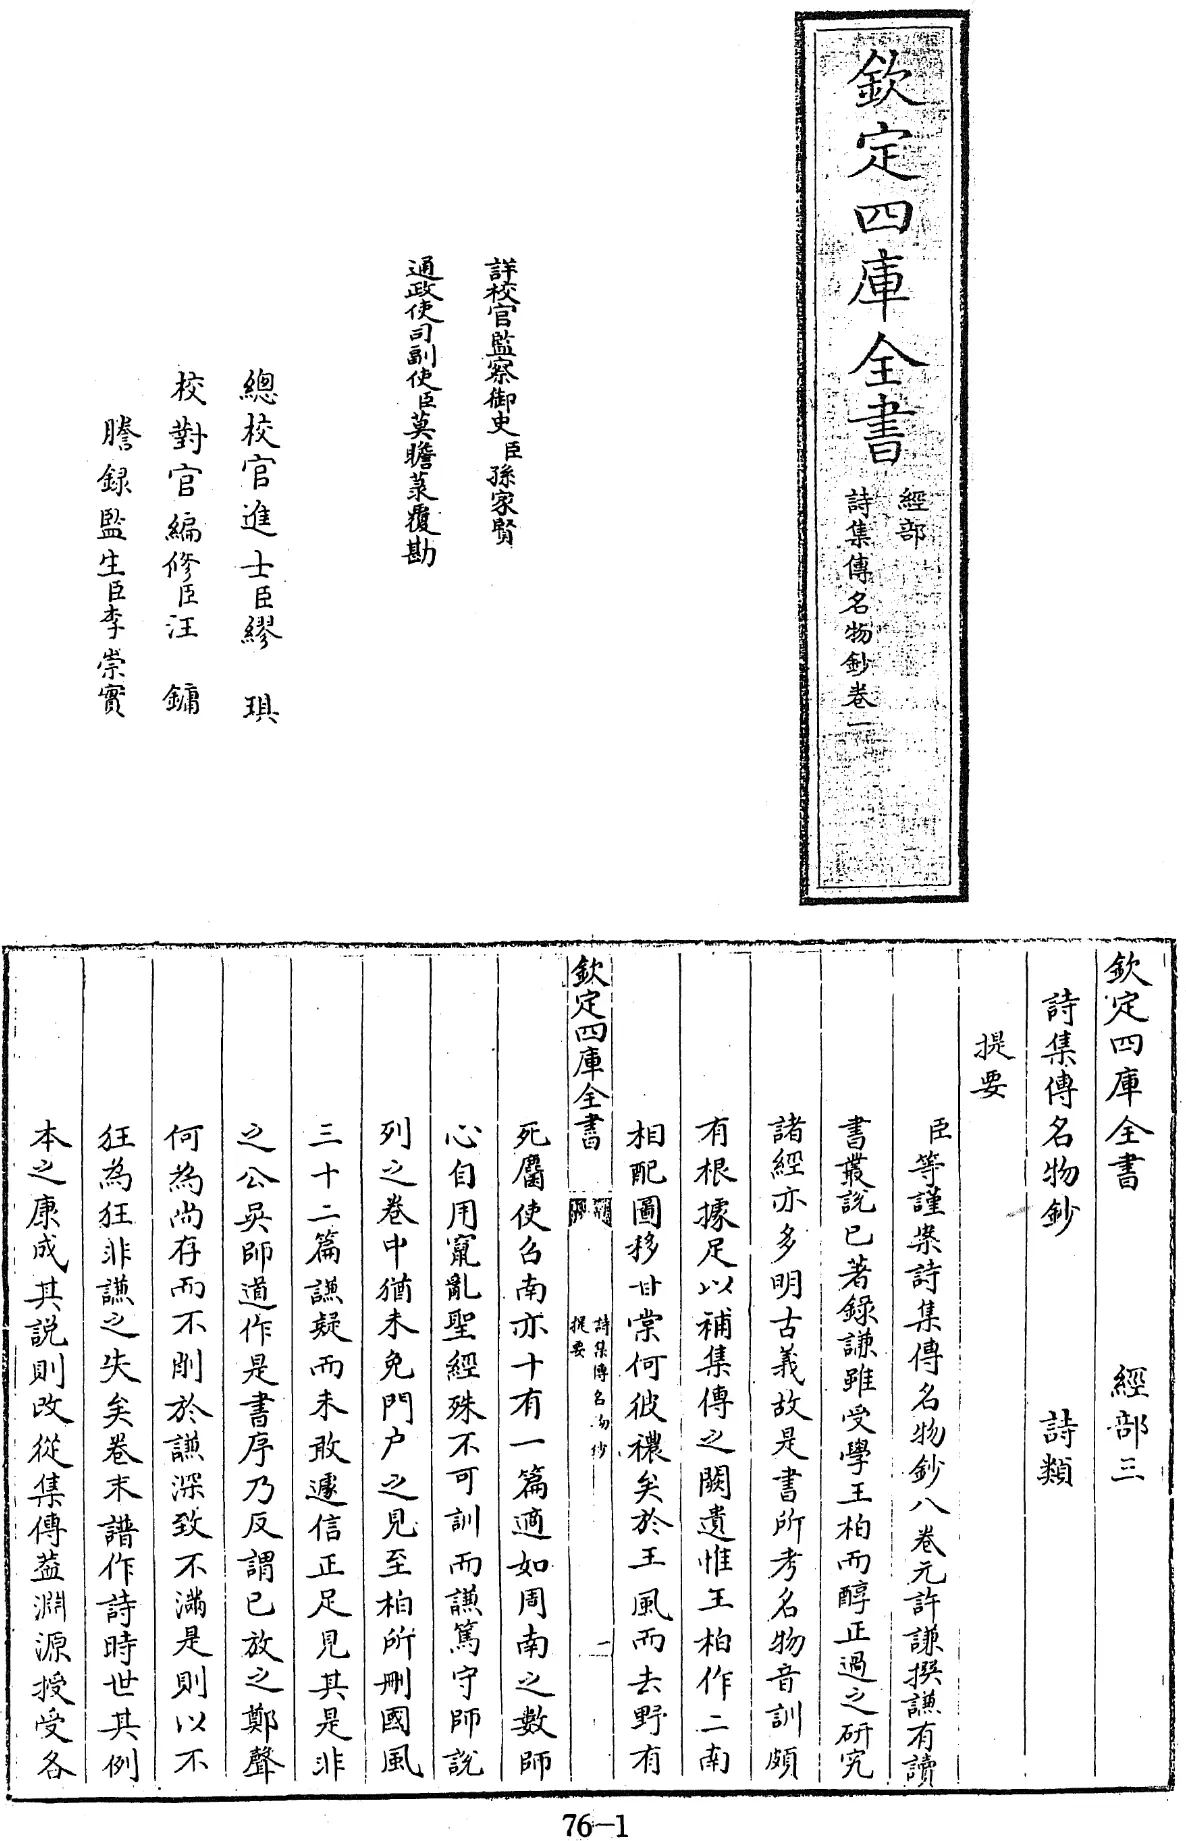 欽定四庫全書
經部
詩集傳名物鈔卷一
詳校官監察御史臣孫家賢
通政使司副使臣莫瞻菉覆勘
總校官進士臣繆琪
校對官編修臣汪鏞
謄錄監生臣李崇實
欽定四庫全書 經部三
詩集傳名物鈔 詩類
提要
臣等謹案詩集傳名物鈔八卷元許謙撰謙有讀
書叢說已著錄謙雖受學王柏而醇正過之研究
諸經亦多明古義故是書所考名物音訓頗
有根據足以補集傳之闕遺惟王柏作二南
相配圖移甘棠何彼襛矣於王風而去野有
欽定四庫全書
詩集傳名物鈔
提要
一
死麕使召南亦十有一篇適如周南之數師
心自用竄亂聖經殊不可訓而謙篤守師說
列之卷中猶未免門户之見至柏所刪國風
三十二篇謙疑而未敢遽信正足見其是非
之公吳師道作是書序乃反謂已放之鄭聲
何為尚存而不刪於謙深致不滿是則以不
狂為狂非謙之失矣卷末譜作詩時世其例
本之康成其說則改從集傳蓋淵源授受各
76-1